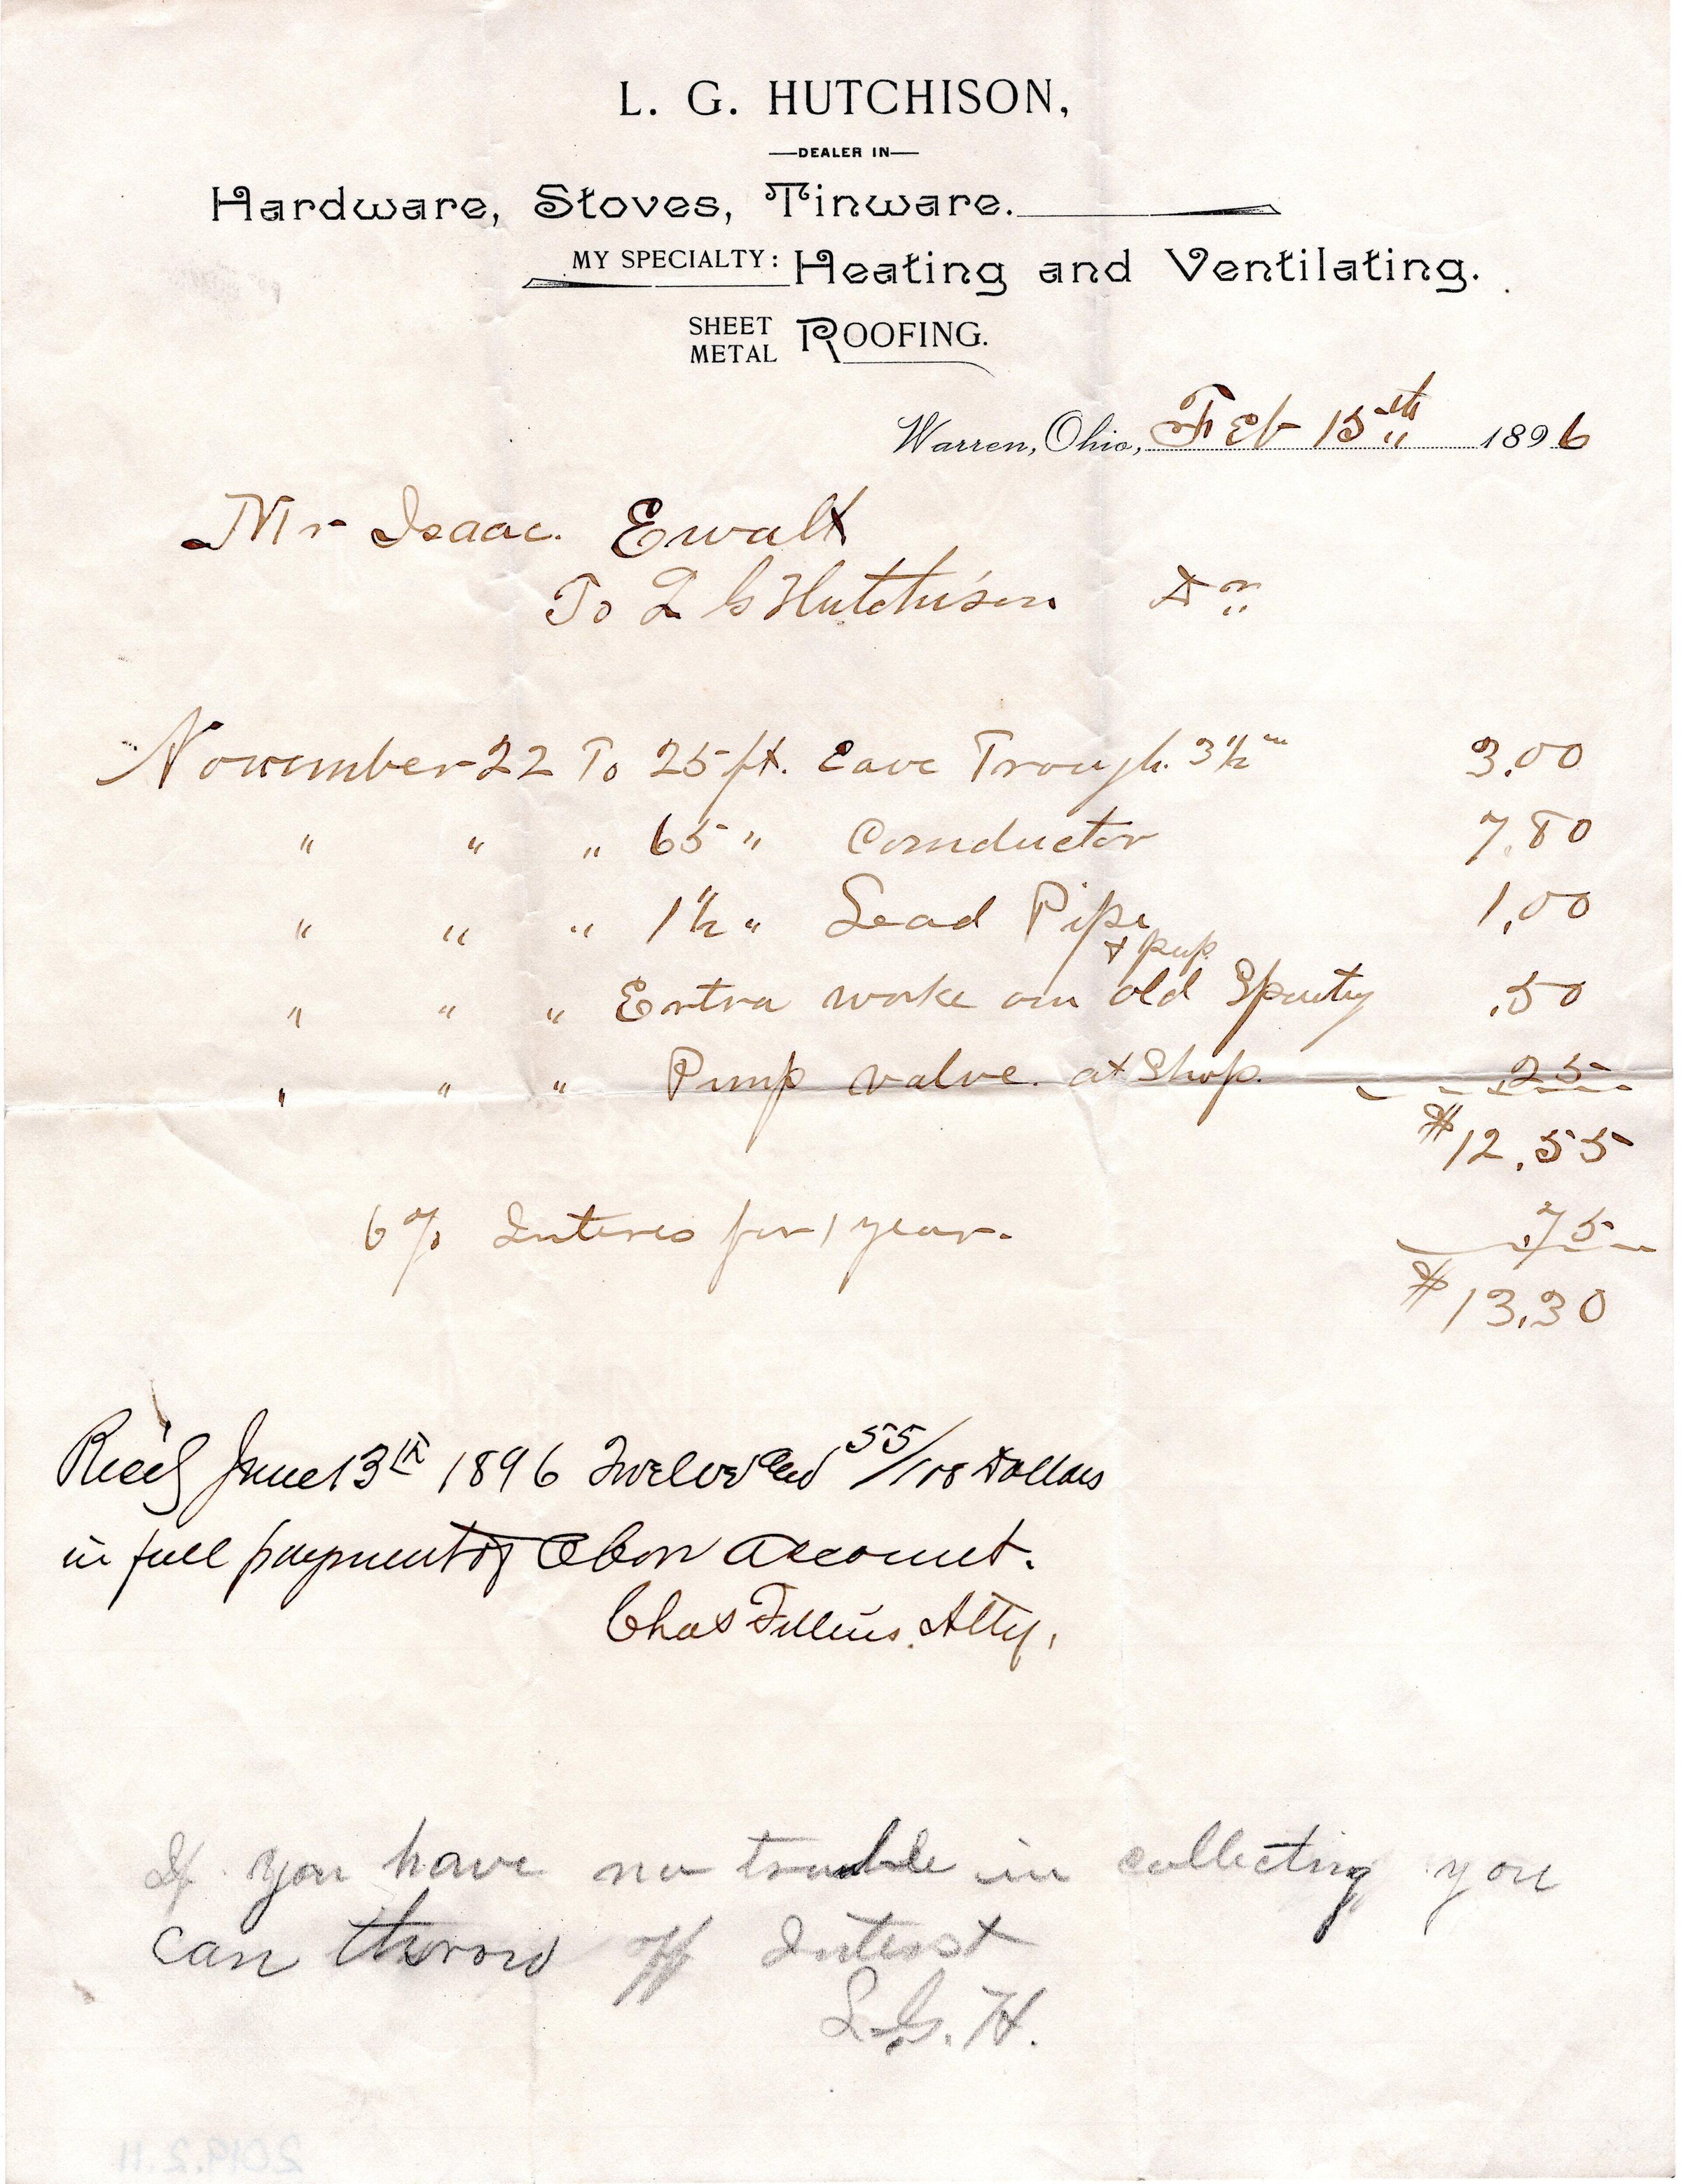 L. G. HUTCHISON,
—DEALER IN—
Hardware, Stoves, Tinware.
MY SPECIALTY: Heating and Ventilating.
SHEET METAL ROOFING.
Warren, Ohio, Feb 15th 1896
Mr Isaac. Ewalt
To L G Hutchison Dr
November 22 To 25 ft. Eave Trough. 3 1/2 in 3.00
" " " 65 " Conductor 7.80
" " " 1 1/2 " Lead Pipe 1.00
" " " Extra work on old 
 .50
" " " Pump valve. at Shop. 25
$12.55
6% Interes for 1 year. .75
$13.30
Recd June 13th 1896 Twelve and 55/100 Dollars
in full payment of above account.
Chas Fillius. Atty.
If you have no trouble in collecting you
can throw off Interst
L.G. H.
2019.2.11